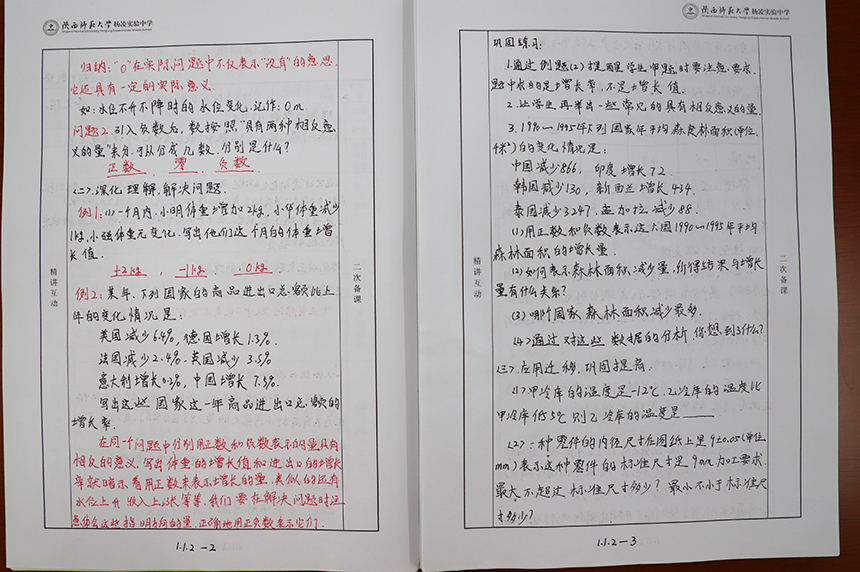 陕西师范大学杨凌实验中学
归纳："0"在实际问题中不仅表示"没有"的意思,
它还具有一定的实际意义.
如:水位不升不降时的水位变化,记作:0m
问题2.引入负数后,数按照"具有两种相反意
义的量"来分,可以分成几数,分别是什么?
正数 、 零 、 负数 .
<二>.深化理解,解决问题.
例1:(1)一个月内,小明体重增加2kg,小华体重减少
1kg,小强体重无变化,写出他们这个月的体重增
长值.
+2kg , -1kg .0kg
例2:某年,下列国家的商品进出口总额比上
年的变化情况是:
美国减少6.4%,德国增长1.3%.
法国减少2.4%.英国减少3.5%
意大利增长0.2%,中国增长7.5%.
写出这些国家这一年商品进出口总额的
增长率.
在同一个问题中分别用正数和负数表示的量具有
相反的意义,写出体重的增长值和进出口的增长
率就暗示着用正数来表示增长的量.类似的还有
水位上升收入上涨等等,我们要在解决问题时注
意体会这些指明方向的量,正确地用正负数表示它们.
精讲互动
二次备课
1.1.2-2
陕西师范大学杨凌实验中学
巩固练习:
1.通过例题(2)提醒学生审题时要注意要求,
题中求的是增长率,不是增长值.
2.让学生再举出一些常见的具有相反意义的量.
3.1990~1995年下列国家年平均森林面积(单位,
) 的变化情况是:
中国减少866, 印度增长72.
韩国减少130, 新西兰增长434.
泰国减少3247,孟加拉减少88.
(1)用正数和负数表示这六国1990~1995年平均
森林面积的增长量.
(2)如何表示森林面积减少量,所得结果与增长
量有什么关系?
(3)哪个国家森林面积减少最多.
(4)通过对这些数据的分析,你想到了什么?
<三>.应用迁移,巩固提高.
(1)甲冷库的温度是-12℃.乙冷库的温度比
甲冷库低5℃则乙冷库的温度是____.
(2)一种零件的内径尺寸在图纸上是9±0.05(单位
mm)表示这种零件的标准尺寸是9mm加工要求.
最大不超过标准尺寸多少?最小不小于标准尺
寸多少?
精讲互动
二次备课
1.1.2-3